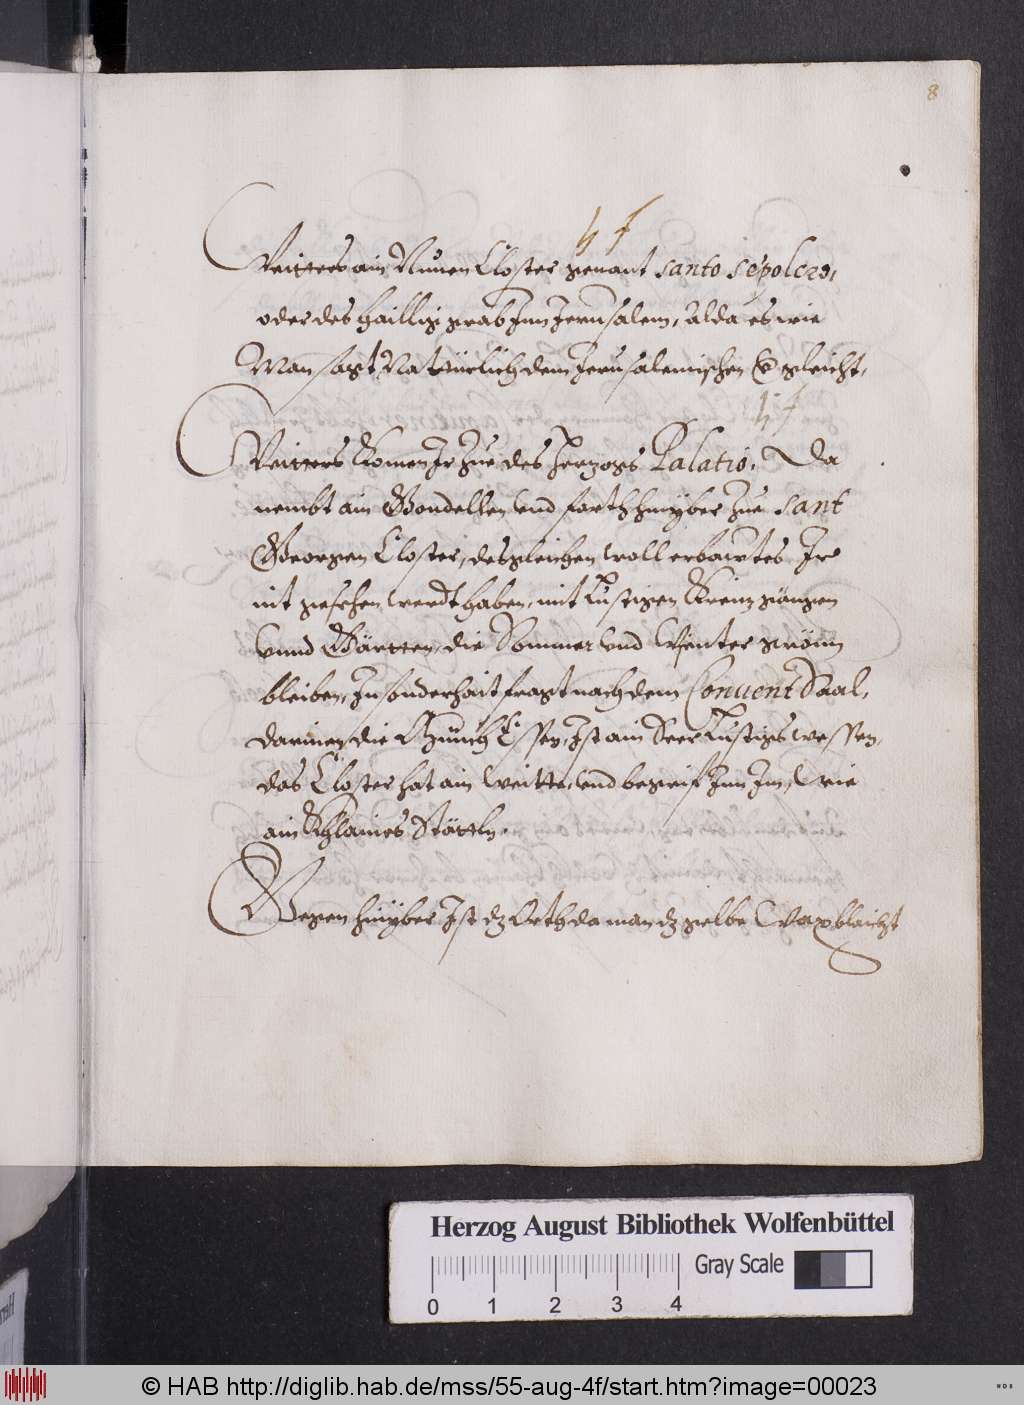 8
Weitters ain Nunen Closter genant santo sepolcro,
oder des haillig grab Inn Jerusalem, Alda es wie
Man sagt Natürlich dem Jerusalemischen gleicht,
Weitters Komen Ir zue des Herzogs Palatio, Da
nembt ain Gondellen vnd farth hinyber zue sant
Georgen Closter, desgleichen woll erbawtes Ir
nit gesehen werdt haben, mit Lustigen Kreizgängen
vnnd Gärtten, die Sommer vnd Winter grönn
bleiben, Insonderhait fragt nach dem Conuent Saal,
darinen die Münch Essen, Ist ain Seer Lustigs wessen,
das Closter hat ain Weitte, vnd begreif Inn Im, Wie
ain Khlaines Stättln.
Gegen hinyber Ist dz Orth da man dz gelbe Wax blaicht
Herzog August Bibliothek Wolfenbüttel
Gray Scale
0 1 2 3 4
© HAB http://diglib.hab.de/mss/55-aug-4f/start.htm?image=00023